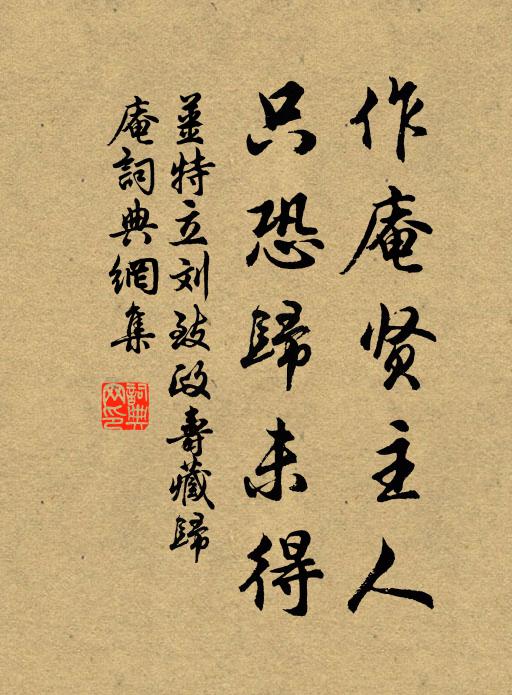 作庵贤主人
只恐歸未得
姜特立刘致政壽藏歸
庵詞典網集
詞典网印